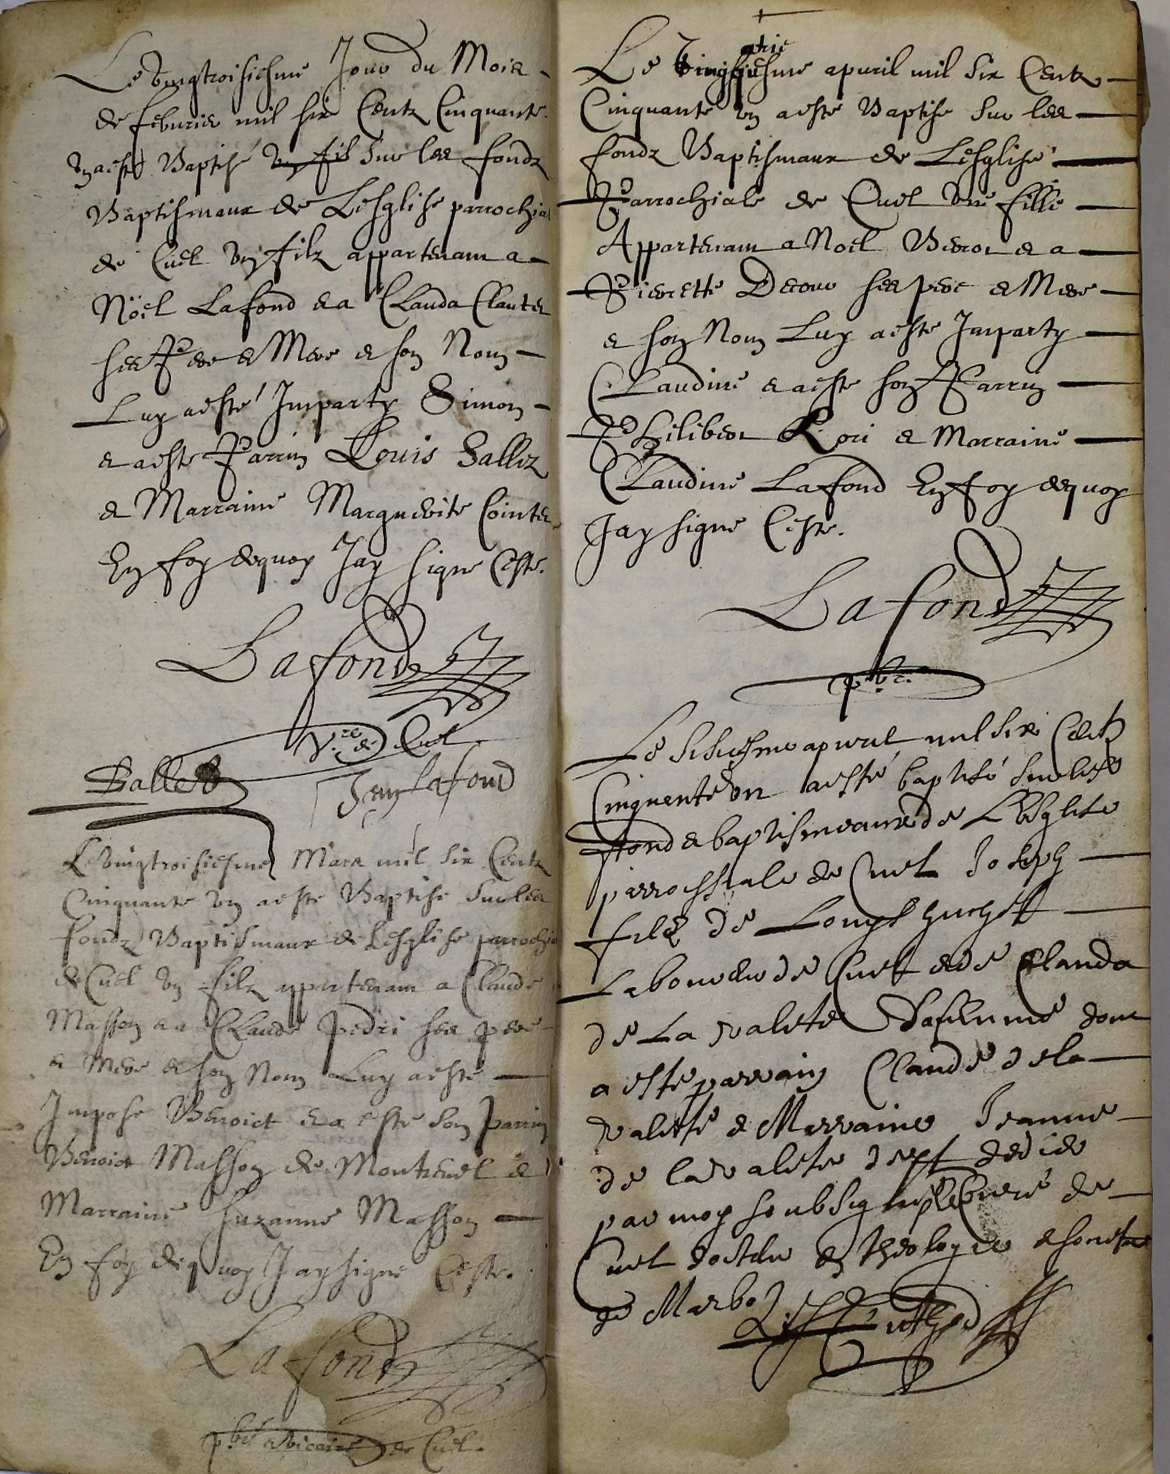 Le vingtroisiesme Jour du Mois
de feburier mil six Centz Cinquante
vn a esté Baptisé vn fils sur les fondz
Baptismaux de Lesglise parrochia
de Cuel vn filz appartenant a
Noël Lafond et a Clauda Clautex
ses Pere et Mere et son Nom
Luy a esté Imparty Simon
et a este Parrin Louis Ballez
et Marraine Marguerite Cointe
En foy dequoy Jay signe Ceste.
Lafond
V.re de Cuel
Ballet Jean Lafond
Le vingtroisiesme Mars mil six Centz
Cinquante vn a este Baptise sur les
fondz Baptismaux de Lesglise parrochia
de Cuel vn filz appartenant a Claude
Masson et a Claude Pedri ses pere
et Mere et son Nom Luy a este
Impose Benoict et a este son Parrin
Benoict Masson de Montcuel et
Marraine Suzanne Masson
En foy dequoy Jay signe Ceste.
Lafond
pbre vicaire de Cuel.
Le Vingtiesme apuril mil six Centz
Cinquante vn a este Baptise sur les
fondz Baptismaux de Lesglise
Parrochiale de Cuel vne fille
Appartenant a Noel et a
Pierrette ses pere et Mere
et son Nom Luy a este Imparty
Claudine et a este son Parrin
Philibert et Marraine
Claudine Lafond En foy dequoy
Jay signe Ceste.
Lafond
pbre.
Le apuril mil six Centz
Cinquente vn a esté baptisé sur les
fonds baptismeaux de Lesglise
parrochiale de Cuel Joseph
filz de Louys
Laboureur de Cuel et de Clauda
de La valete sa femme dont
a este parrain Claude de la
valete et Marraine Jeanne
de la valete
par moy soubsigne Cure de
Cuel docteur en theologie
de Marbo